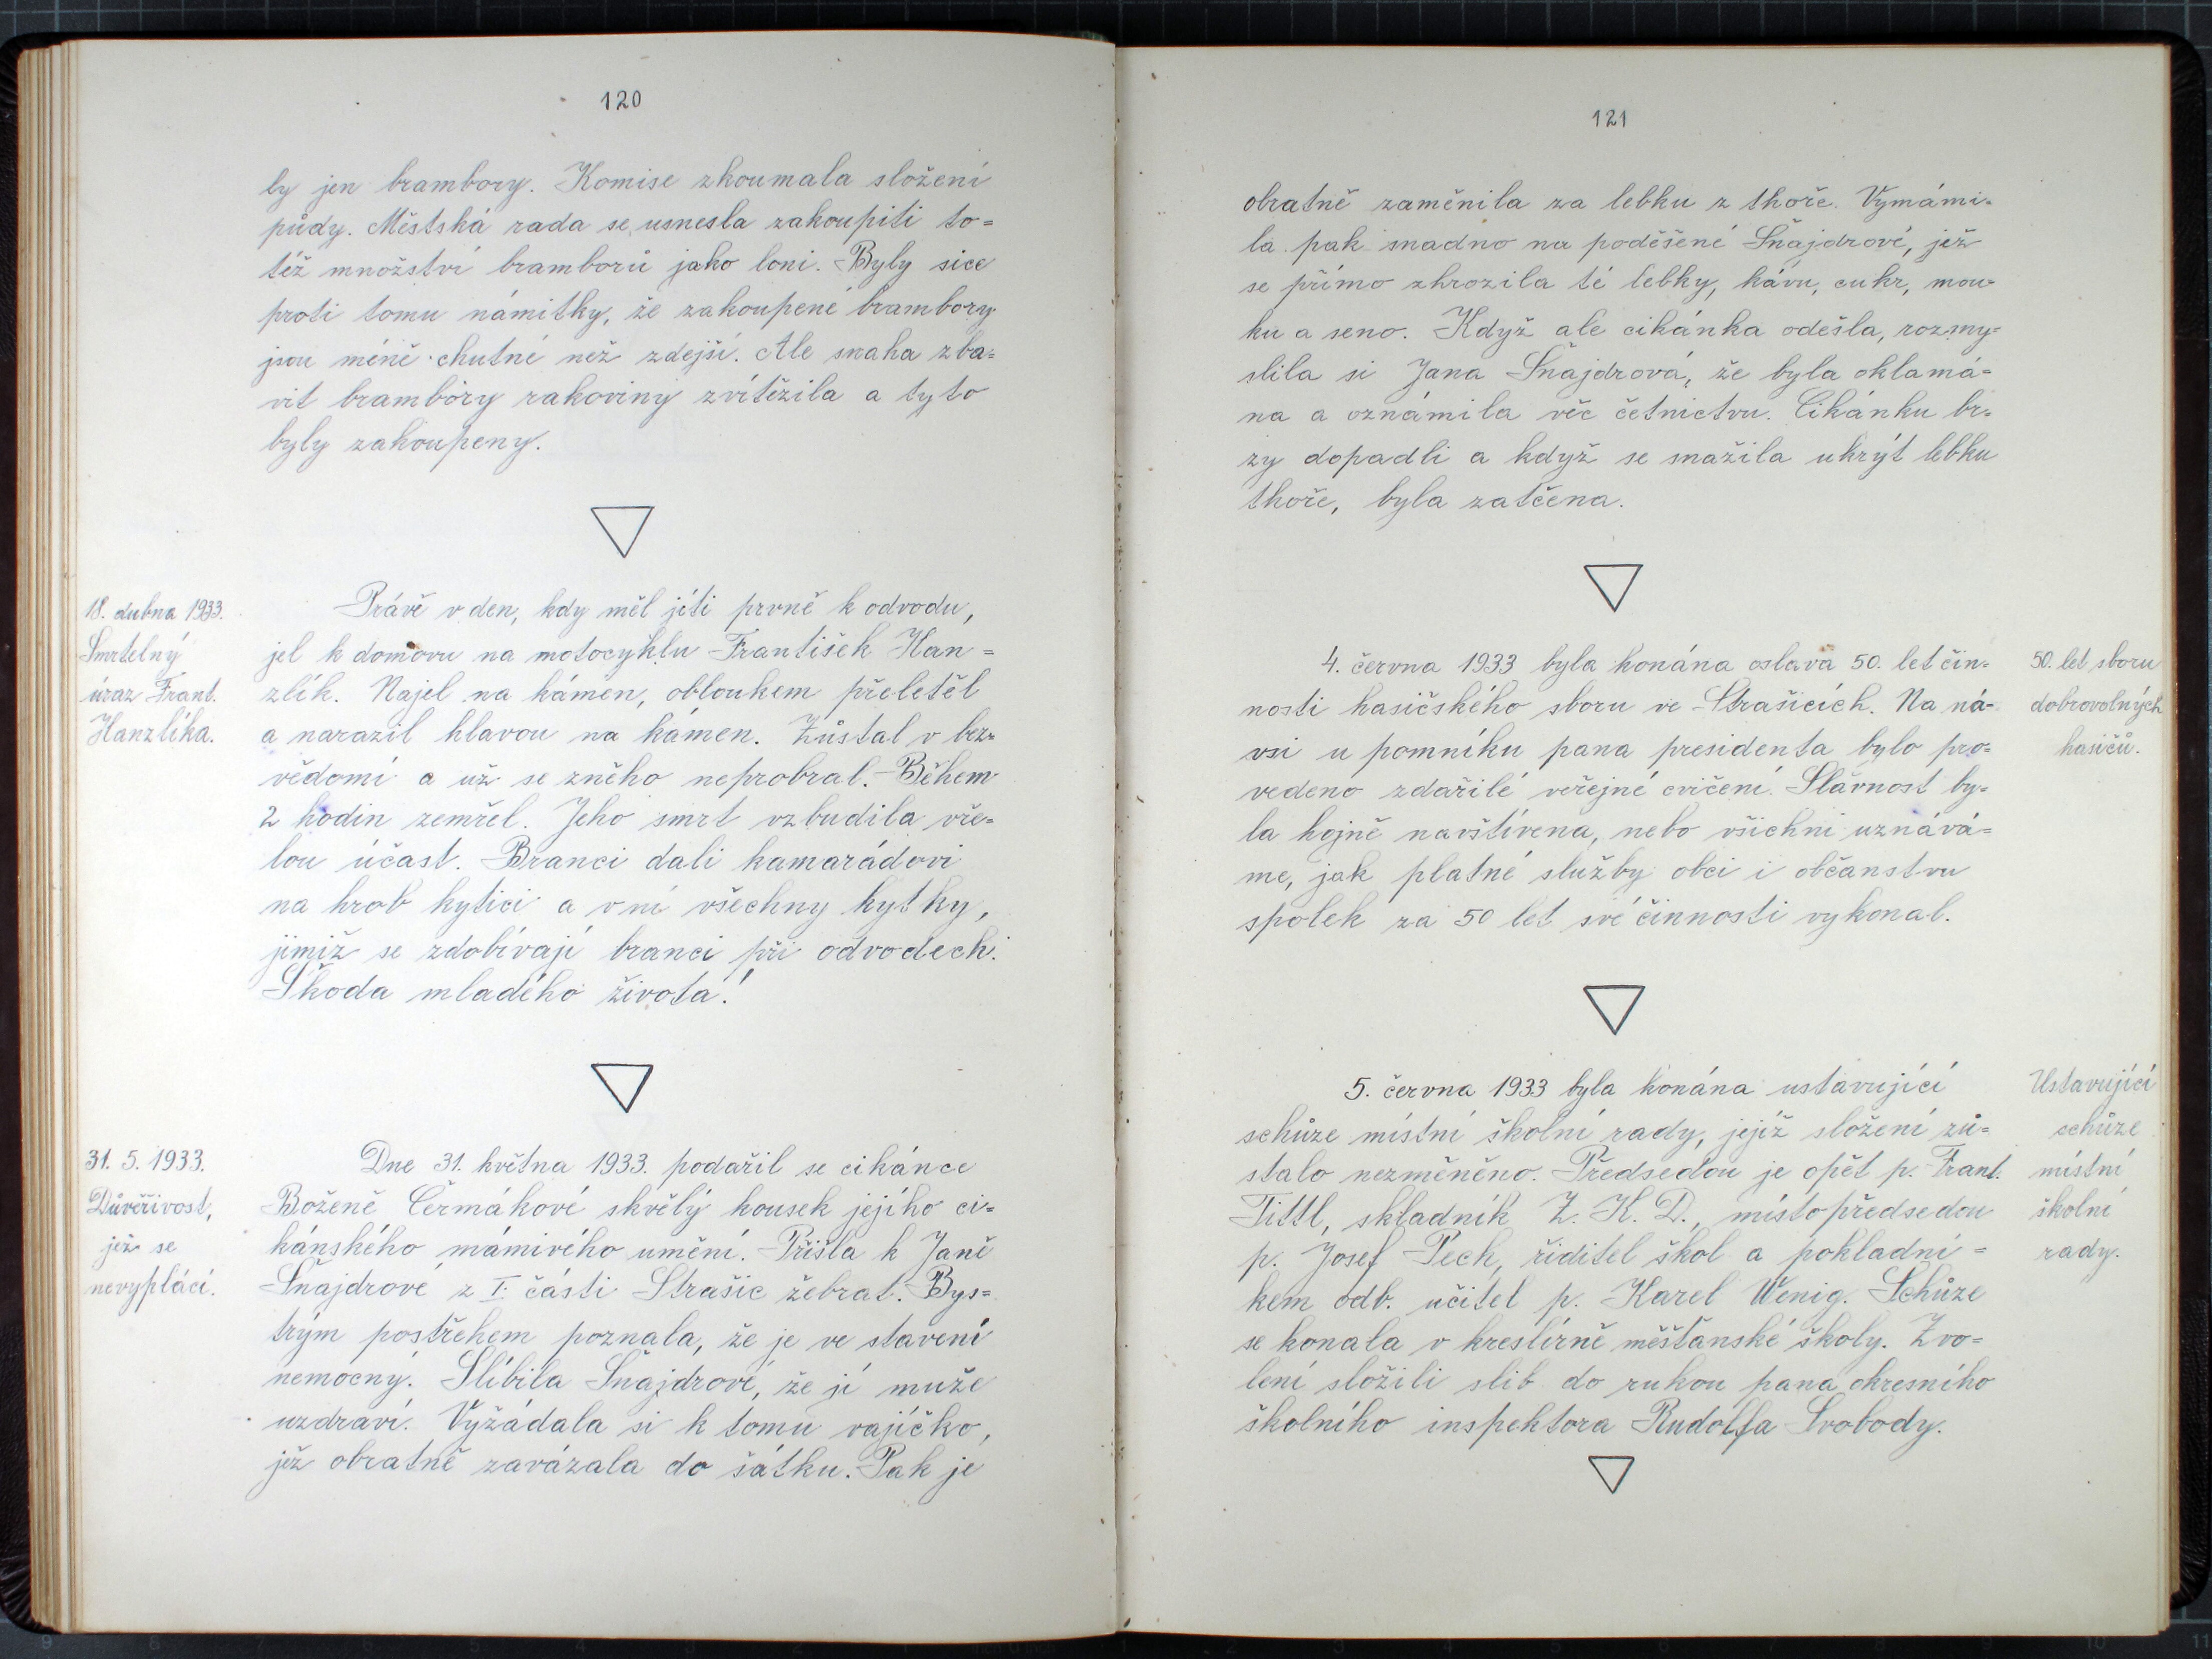 120
ly jen brambory. Komise zkoumala složení
půdy. Městská rada se usnesla zakoupiti to=
též množství bramborů jako loni. Byly sice
proti tomu námitky, že zakoupené brambory
jsou méně chutné než zdejší. Ale snaha zba=
vit brambory rakoviny zvítězila a tyto
byly zakoupeny.
18. dubna 1933.
Smrtelný
úraz Frant.
Hanzlíka.
Právě v den, kdy měl jíti prvně k odvodu,
jel k domovu na motocyklu František Han=
zlík. Najel na kámen, obloukem přeletěl
a narazil hlavou na kámen. Zůstal v bez=
vědomí a už se zněho neprobral. Během
2 hodin zemřel. Jeho smrt vzbudila vře=
lou účast. Branci dali kamarádovi
na hrob kytici a vní všechny kytky,
jimiž se zdobívají branci při odvodech.
Škoda mladého života!
31. 5. 1933.
Důvěřivost,
jež se
nevyplácí.
Dne 31. května 1933. podařil se cikánce
Boženě Čermákové skvělý kousek jejího ci=
kánského mámivého umění. Přišla k Janě
Šnajdrové z I. části Strašic žebrat. Bys=
trým postřehem poznala, že je ve stavení
nemocný. Slíbila Šnajdrové, že jí muže
uzdraví. Vyžádala si k tomu vajíčko,
jež obratně zavázala do šátku. Pak je
121
obratně zaměnila za lebku z thoře. Vymámi=
la pak snadno na poděšené Šnajdrové, jež
se přímo zhrozila té lebky, kávu, cukr, mou=
ku a seno. Když ale cikánka odešla, rozmy=
slila si Jana Šnajdrová, že byla oklamá=
na a oznámila věc četnictvu. Cikánku br=
zy dopadli a když se snažila ukrýt lebku
thoře, byla zatčena.
4. června 1933 byla konána oslava 50. let čin=
nosti hasičského sboru ve Strašicích. Na ná=
vsi u pomníku pana presidenta bylo pro=
vedeno zdařilé veřejné cvičení. Slavnost by=
la hojně navštívena, nebo všichni uznává=
me, jak platné služby obci i občanstvu
spolek za 50 let své činnosti vykonal.
50. let sboru
dobrovolných
hasičů.
5. června 1933 byla konána ustavující
schůze místní školní rady, jejíž složení zů=
stalo nezměněno. Předsedou je opět p. Frant.
Tittl, skladník Z. K. D., místopředsedou
p. Josef Pech, řiditel škol a pokladní=
kem odb. učitel p. Karel Wenig. Schůze
se konala v kreslírně měšťanské školy. Zvo=
lení složili slib do rukou pana okresního
školního inspektora Rudolfa Svobody.
Ustavující
schůze
místní
školní
rady.